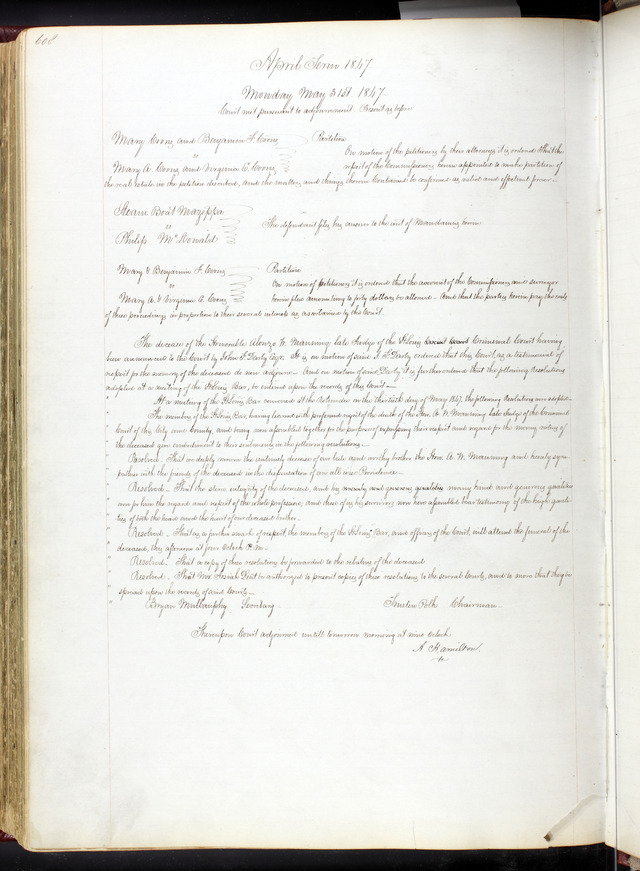 608
April Term 1847
Monday May 31st 1847
Court met pursuant to adjournment. Present as before
Mary Coons and Benjamin F. Coons Partition
vs On motion of the petitioners by their attorneys it is ordered that the
Mary A. Coons and Virginia E. Coons report of the Commissioners herein appointed to make partition of
the real estate in the petition described, and the matters and things therein contained be confirmed as valid and effectual
Steam Boat Mazippa
vs The defendant files his answer to the writ of Mandamus herein
Philip McDonald
Mary & Benjamin F. Coons Partition
vs On motion of petitioners it is ordered that the account of the Commissioners and surveyor
Mary A. & Virginia E. Coons herein filed amounting to forty dollars be allowed. And that the parties herein pay the costs
of these proceedings in proportion to their several interests as ascertained by this Court.
The decease of the Honorable Alonzo W. Manning late Judge of the St Louis Criminal Court having
been announced to this Court by John F. Darby Esqr. It is on motion of said J. F. Darby ordered that this Court, as a testimonial of
respect for the memory of the deceased do now adjourn. And on motion of said Darby it is further ordered that the following Resolutions
adopted at a meeting of the St Louis Bar, be entered upon the records of this Court
At a meeting of the St Louis Bar convened at the Rotunda on this the day of May 1847, the following Resolutions were adopted
The members of the St Louis Bar, having learned with profound regret of the death of the Hon. A. W. Manning late Judge of the Criminal
Court of this City and County, and being now assembled together for the purpose of expressing their respect and regard for the many virtues of
the deceased give embodiment to their sentiments in the following resolutions
Resolved. That we deeply mourn the untimely decease of our late and worthy brother the Hon. A. W. Manning and hereby sym
pathise with the friends of the deceased in the dispensation of an all wise Providence
Resolved. That the stern integrity of the deceased, and his many and generous qualities
won for him the regard and respect of the whole profession, and those of us his survivors now here assembled bear testimony of the high quali
ties of both the head and the heart of our deceased brother.
Resolved. That as a further mark of respect, the members of the St Louis Bar, and officers of the Court, will attend the funeral of the
deceased, this afternoon at four oclock P.M.
Resolved. That a copy of these resolutions be forwarded to the relatives of the deceased
Resolved. That be authorized to present copies of these resolutions to the several Courts, and to move that they be
spread upon the records of said Courts
Bryan Mullanphy Secretary Trusten Polk Chairman
Thereupon Court adjourned untill tomorrow morning at nine oclock
A. Hamilton.